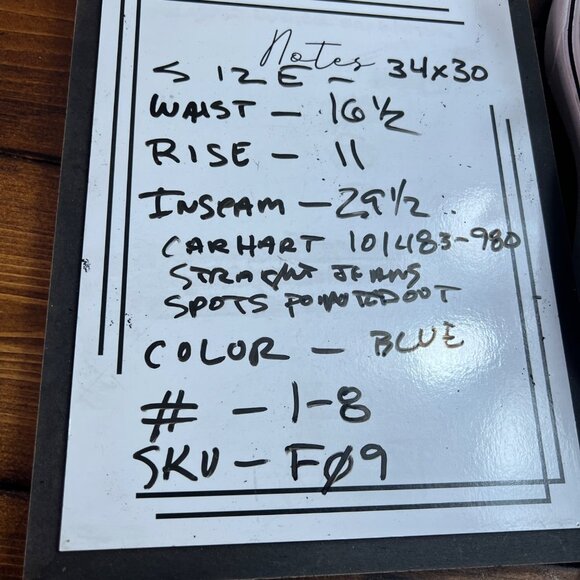 Notes
SIZE - 34x30
WAIST - 16 1/2
RISE - 11
INSEAM - 29 1/2
CARHART 101483-980
STRAIGHT JEANS
SPOTS POINTED OUT
COLOR - BLUE
# - 1-8
SKU - FØ9